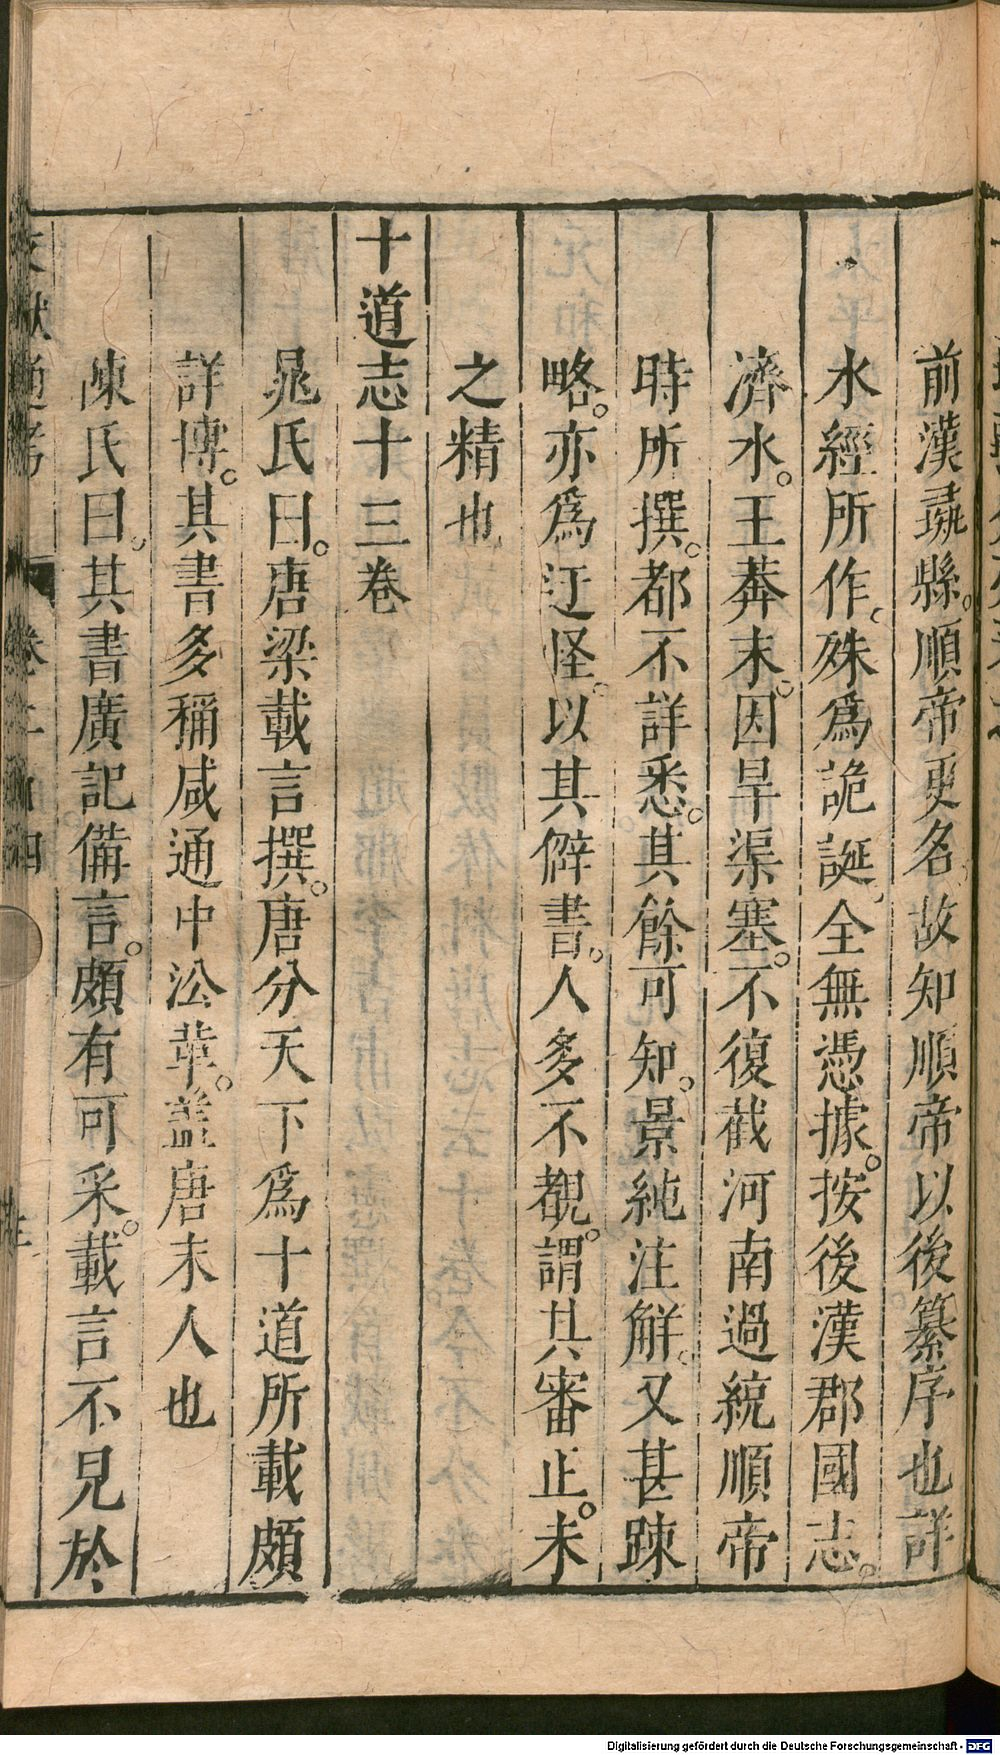 前漢彘縣。順帝更名。故知順帝以後纂序也詳
水經所作。殊爲詭誕。全無憑據。按後漢郡國志。
濟水。王莽末。因旱渠塞。不復截河南過統順帝
時所撰。都不詳悉。其餘可知。景純注解。又甚踈
略。亦爲迂怪。以其僻書。人多不覩。謂其審止。未
之精也
十道志十三卷
晁氏曰。唐梁載言撰。唐分天下爲十道所載頗
詳博。其書多稱咸通中沿革。蓋唐末人也
陳氏曰。其書廣記備言。頗有可采。載言不見於
文獻通考 卷二百四
Digitalisierung gefördert durch die Deutsche Forschungsgemeinschaft - DFG